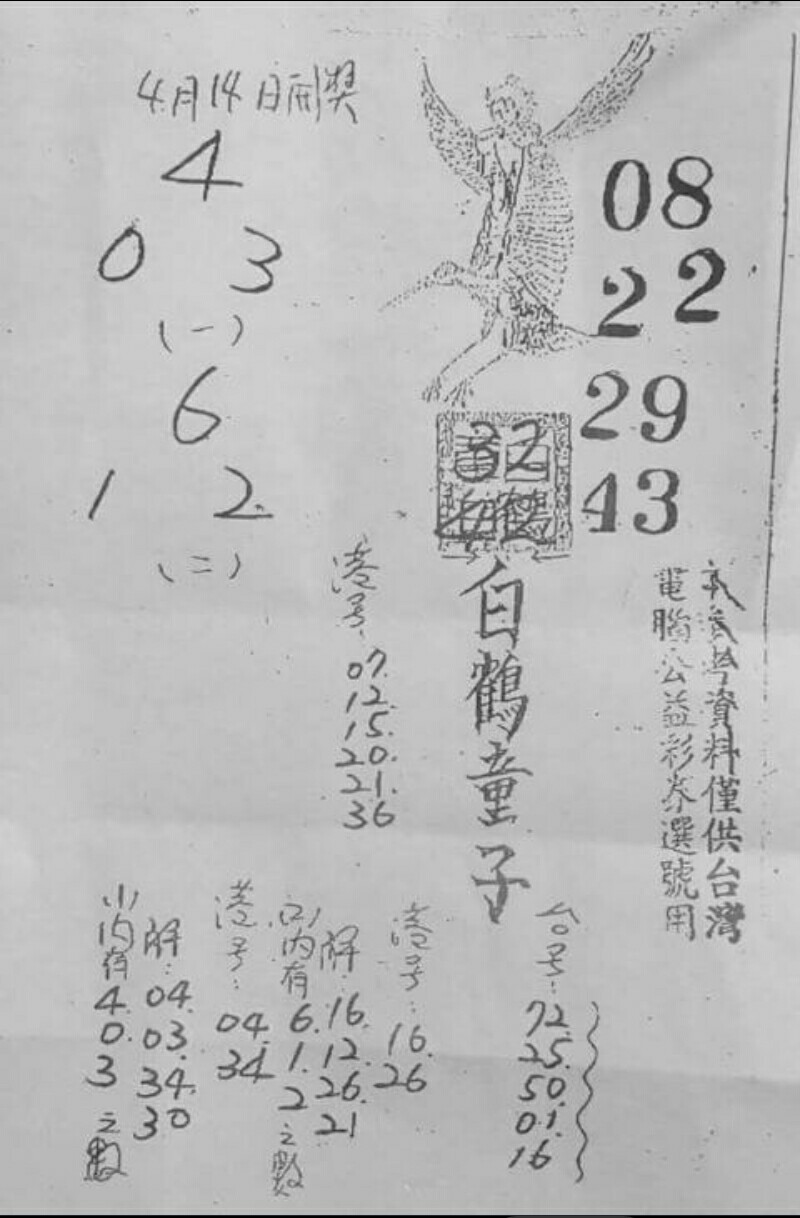 4月14日開獎
4
0 3
(一)
6
1 2
(二)
08
22
29
43
32
白鶴
白鶴童子
本參考資料僅供台灣
電腦公益彩券選號用
港号:
07.
12.
15.
20.
21.
36
台号:
72.
25.
50.
01.
16
港号:
16.
26
解:
16.
12.
26.
21
(二)内有
6.
1.
2
之數
港号:
04.
34
解:
04.
03.
34.
30
(一)内有
4.
0.
3
之數